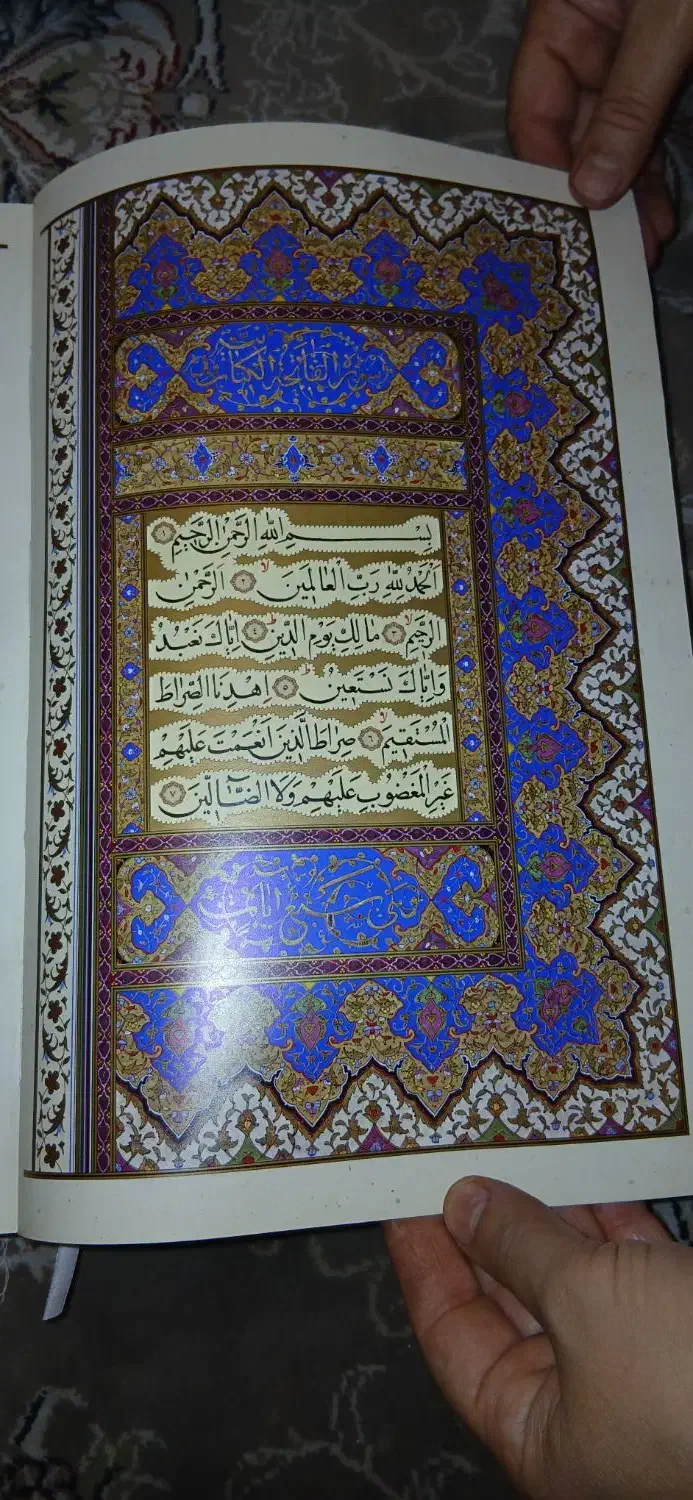 سورة الفاتحة الكتاب
بِسْمِ اللهِ الرَّحْمٰنِ الرَّحِيمِ ۝١
اَلْحَمْدُ لِلّٰهِ رَبِّ الْعَالَمِينَ ۝٢ اَلرَّحْمٰنِ
الرَّحِيمِ ۝٣ مَالِكِ يَوْمِ الدِّينِ ۝٤ اِيَّاكَ نَعْبُدُ
وَاِيَّاكَ نَسْتَعِينُ ۝٥ اِهْدِنَا الصِّرَاطَ
الْمُسْتَقِيمَ ۝٦ صِرَاطَ الَّذِينَ اَنْعَمْتَ عَلَيْهِمْ
غَيْرِ الْمَغْضُوبِ عَلَيْهِمْ وَلَا الضَّٓالِّينَ ۝٧